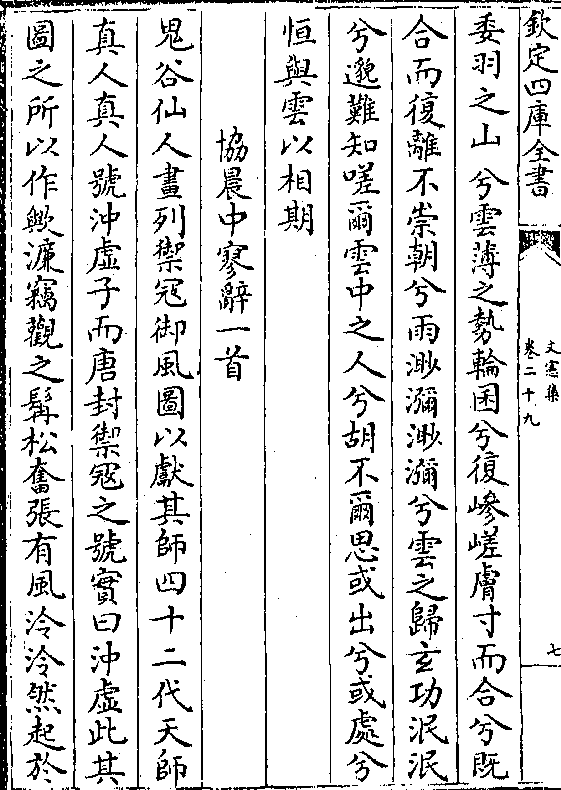 欽定四庫全書
文憲集
卷二十九
七
委羽之山兮雲薄之勢輪囷兮復嵾嵯膚寸而合兮既
合而復離不崇朝兮雨渺瀰渺瀰兮雲之歸玄功泯泯
兮邈難知嗟爾雲中之人兮胡不爾思或出兮或處兮
恒與雲以相期
協晨中寥辭一首
鬼谷仙人畫列禦冦御風圖以獻其師四十二代天師
真人真人號沖虛子而唐封禦冦之號實曰沖虛此其
圖之所以作歟濂竊觀之髯松奮張有風泠泠然起於